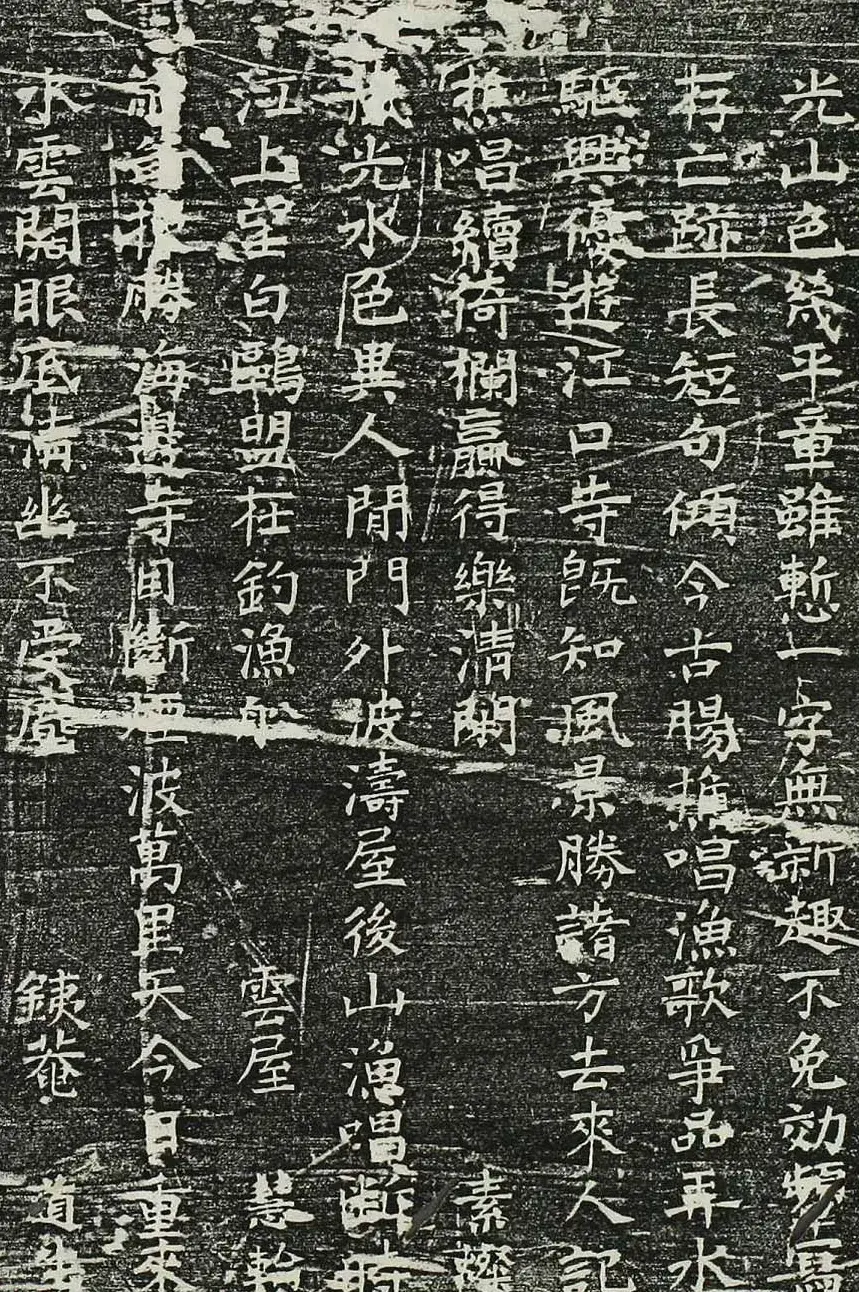 光山色幾平章雖慙一字無新趣不免効顰寫
存亡跡長短句傾今古腸樵唱漁歌爭品再水
驅興優遊江口寺既知風景勝諸方去來人記
樵唱續倚欄贏得樂清閑 素璨
光水色異人間門外波濤屋後山漁唱斷時
江上望白鷗盟在釣漁舟 雲屋 慧輪
勝海邊寺目斷煙波萬里天今日重來
水雲閣眼底清幽不受塵 銕菴 道生